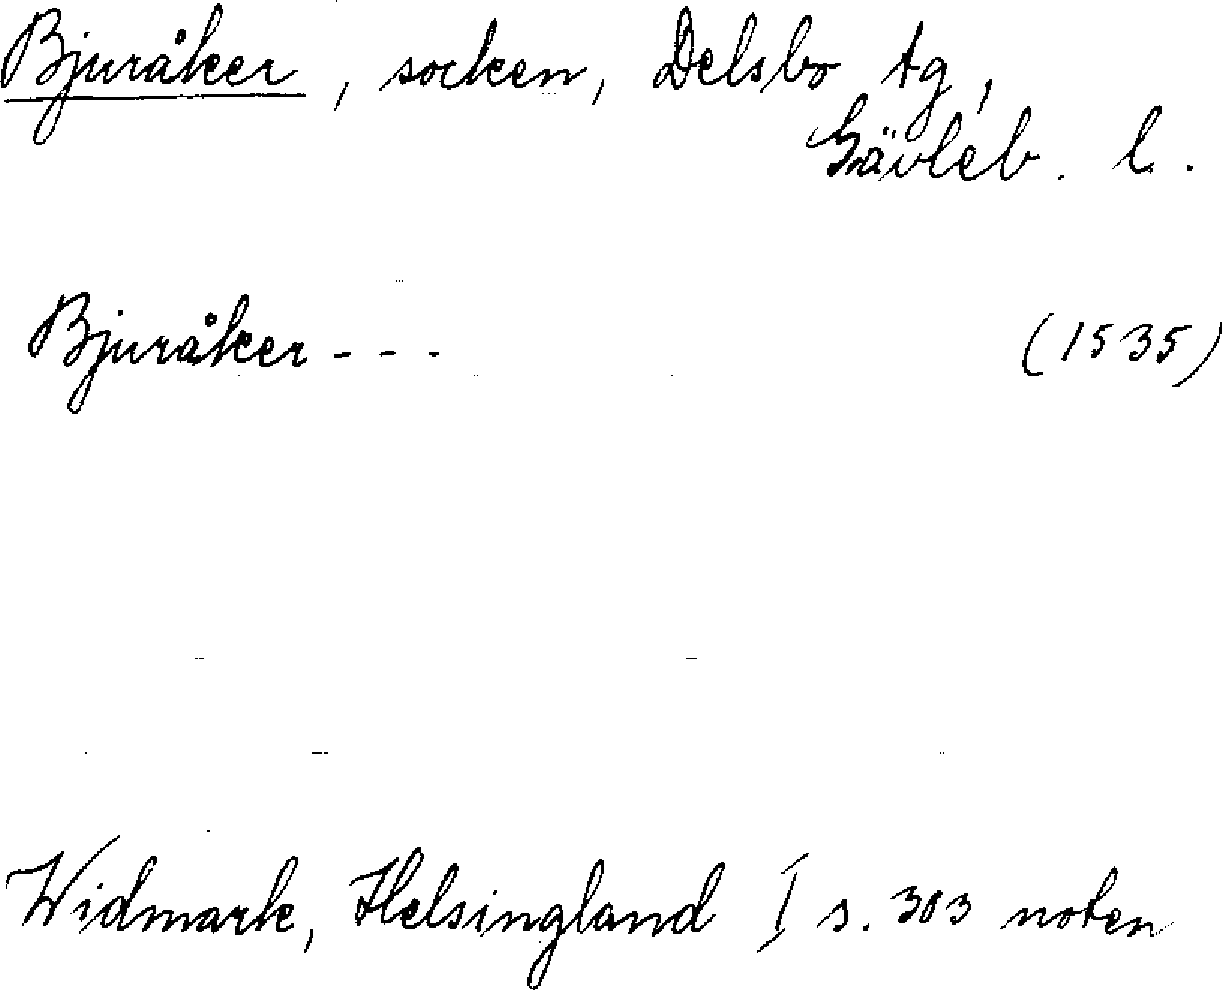 Bjuråker, socken, Delsbo tg,
Gävleb. l.
Bjuråker - - - (1535)
Widmark, Helsingland I s. 303 noten